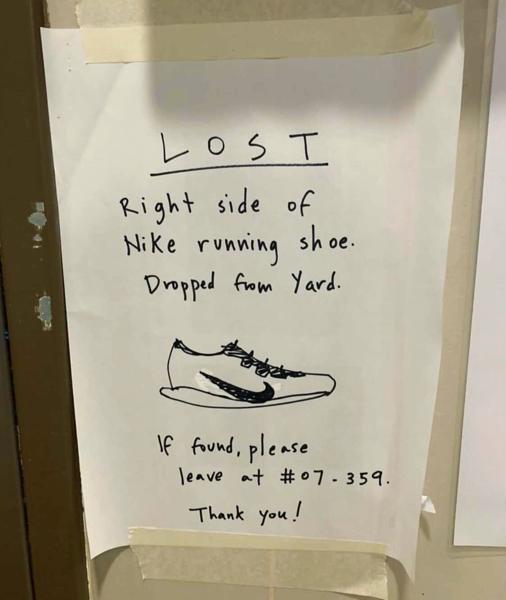 LOST
Right side of
Nike running shoe.
Dropped from Yard.
If found, please
leave at #07-359.
Thank you!